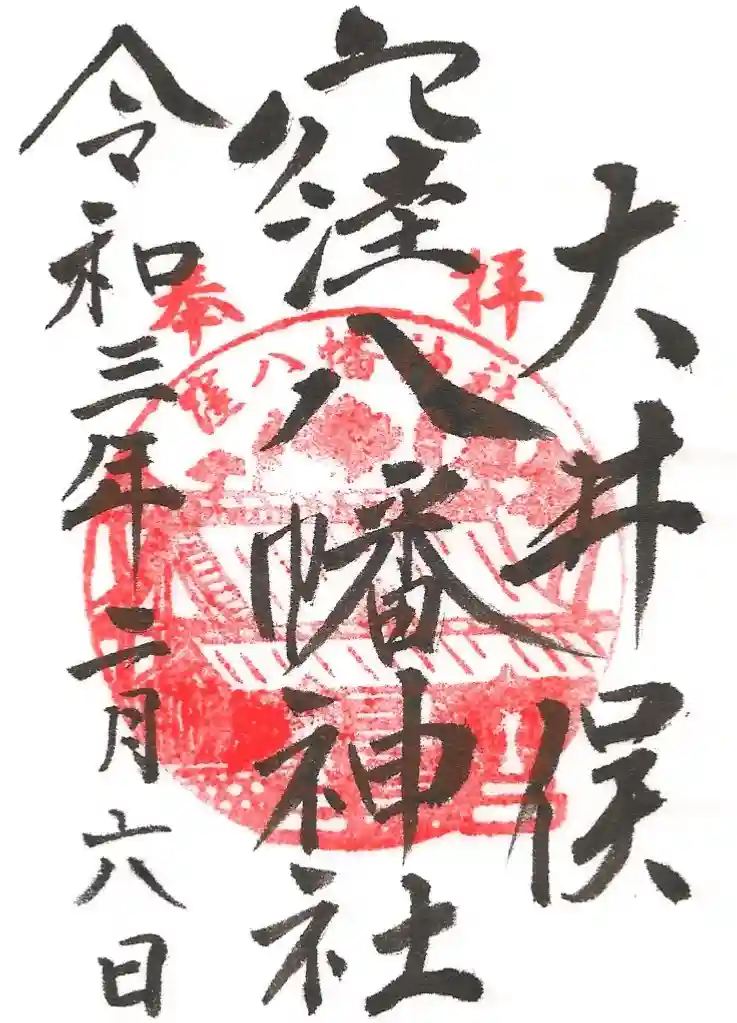 奉拝
大井俣
窪八幡神社
窪八幡神社
令和三年二月六日